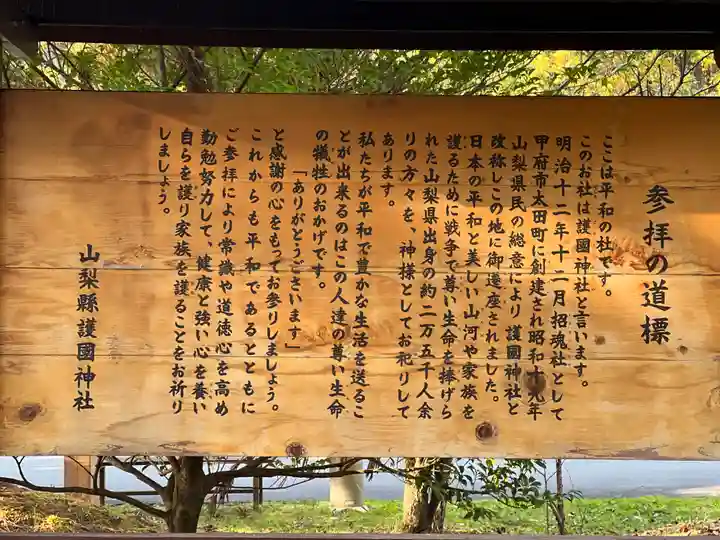 参拝の道標
ここは平和の社です。
このお社は護國神社と言います。
明治十二年十二月招魂社として
甲府市太田町に創建され昭和十九年
山梨県民の総意により護國神社と
改称しこの地に御遷座されました。
日本の平和と美しい山河や家族を
護るために戦争で尊い生命を捧げら
れた山梨県出身の約二万五千人余
りの方々を、神様としてお祀りして
あります。
私たちが平和で豊かな生活を送るこ
とが出来るのはこの人達の尊い生命
の犠牲のおかげです。
「ありがとうございます」
と感謝の心をもってお参りしましょう。
これからも平和であるとともに
ご参拝により常識や道徳心を高め
勤勉努力して、健康と強い心を養い
自らを護り家族を護ることをお祈り
しましょう。
山梨縣護國神社